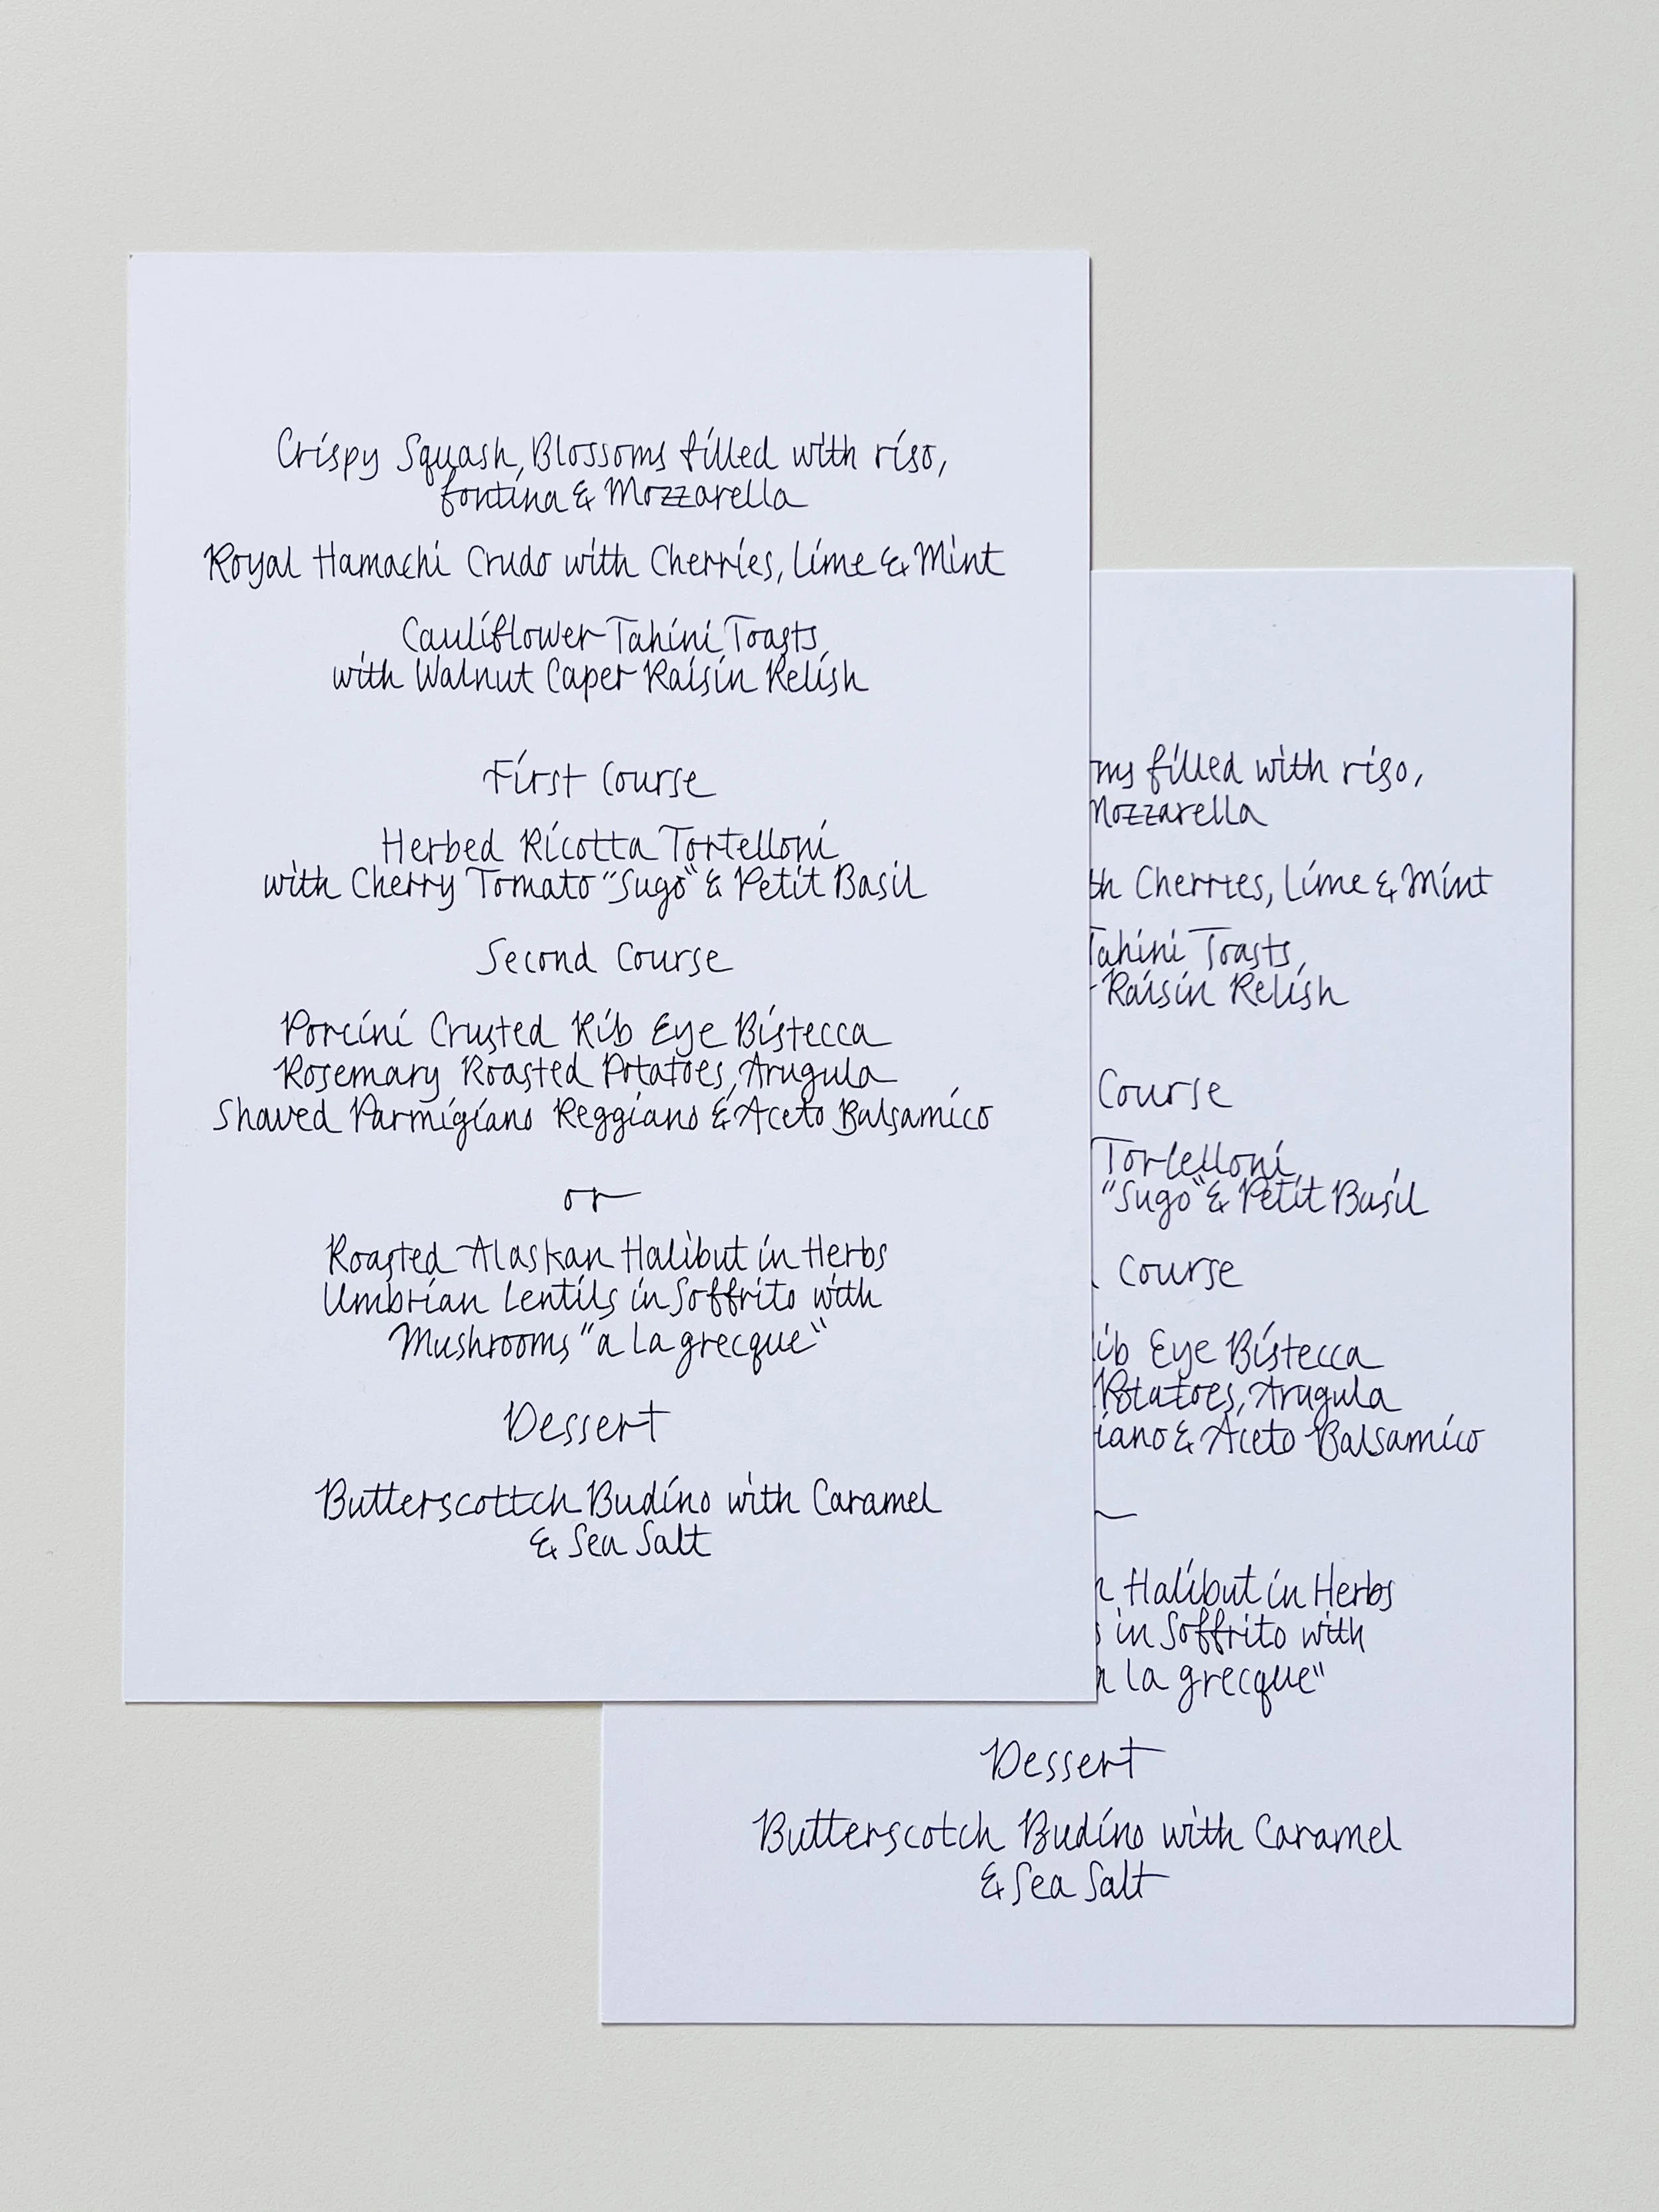 Crispy Squash Blossoms filled with riso,
fontina & Mozzarella
Royal Hamachi Crudo with Cherries, Lime & Mint
Cauliflower Tahini Toasts
with Walnut Caper Raisin Relish
First Course
Herbed Ricotta Tortelloni
with Cherry Tomato "Sugo" & Petit Basil
Second Course
Porcini Crusted Rib Eye Bistecca
Rosemary Roasted Potatoes, Arugula
Shaved Parmigiano Reggiano & Aceto Balsamico
or
Roasted Alaskan Halibut in Herbs
Umbrian Lentils in Soffrito with
Mushrooms "a la grecque"
Dessert
Butterscottch Budino with Caramel
& Sea Salt
ms filled with riso,
Mozzarella
th Cherries, Lime & Mint
Tahini Toasts,
Raisin Relish
Course
Tortelloni
"Sugo" & Petit Basil
Course
ib Eye Bistecca
Potatoes, Arugula
iano & Aceto Balsamico
Halibut in Herbs
in Soffrito with
a la grecque"
Dessert
Butterscotch Budino with Caramel
& Sea Salt